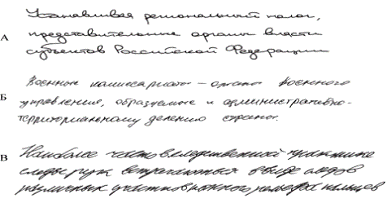 Устанавливая региональный налог,
А
представительные органы власти
субъектов Российской Федерации
Военные комиссариаты – органы военного
Б
управления, образуемые в административно-
территориальному делению страны.
В
Наиболее часто в следственной практике
следы рук встречаются в виде следов
различных участков ладони, размеров пальцев